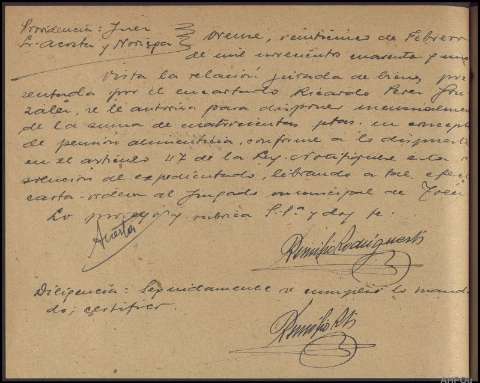 Providencia: Juez
Sr. Acosta y Noriega
Orense, veinticinco de Febrero
de mil novecientos cuarenta y uno
Vista la relación jurada de bienes pre
sentada por el encartado Ricardo Perez Gon
zález, se le autoriza para disponer mensualmen
de la suma de cuatrocientas ptas. en concepto
de pensión alimenticia, conforme a lo dispuesto
en el artículo 47 de la Ley. Notifiquese esta re
solución al expedientado, librando a tal efecto
carta-orden al Juzgado municipal de
Lo proveyó y rubrica S.Sª y doy fe.
Acosta
Remigio
Diligencia: Seguidamente se cumplió lo manda
do; certifico.
Remigio